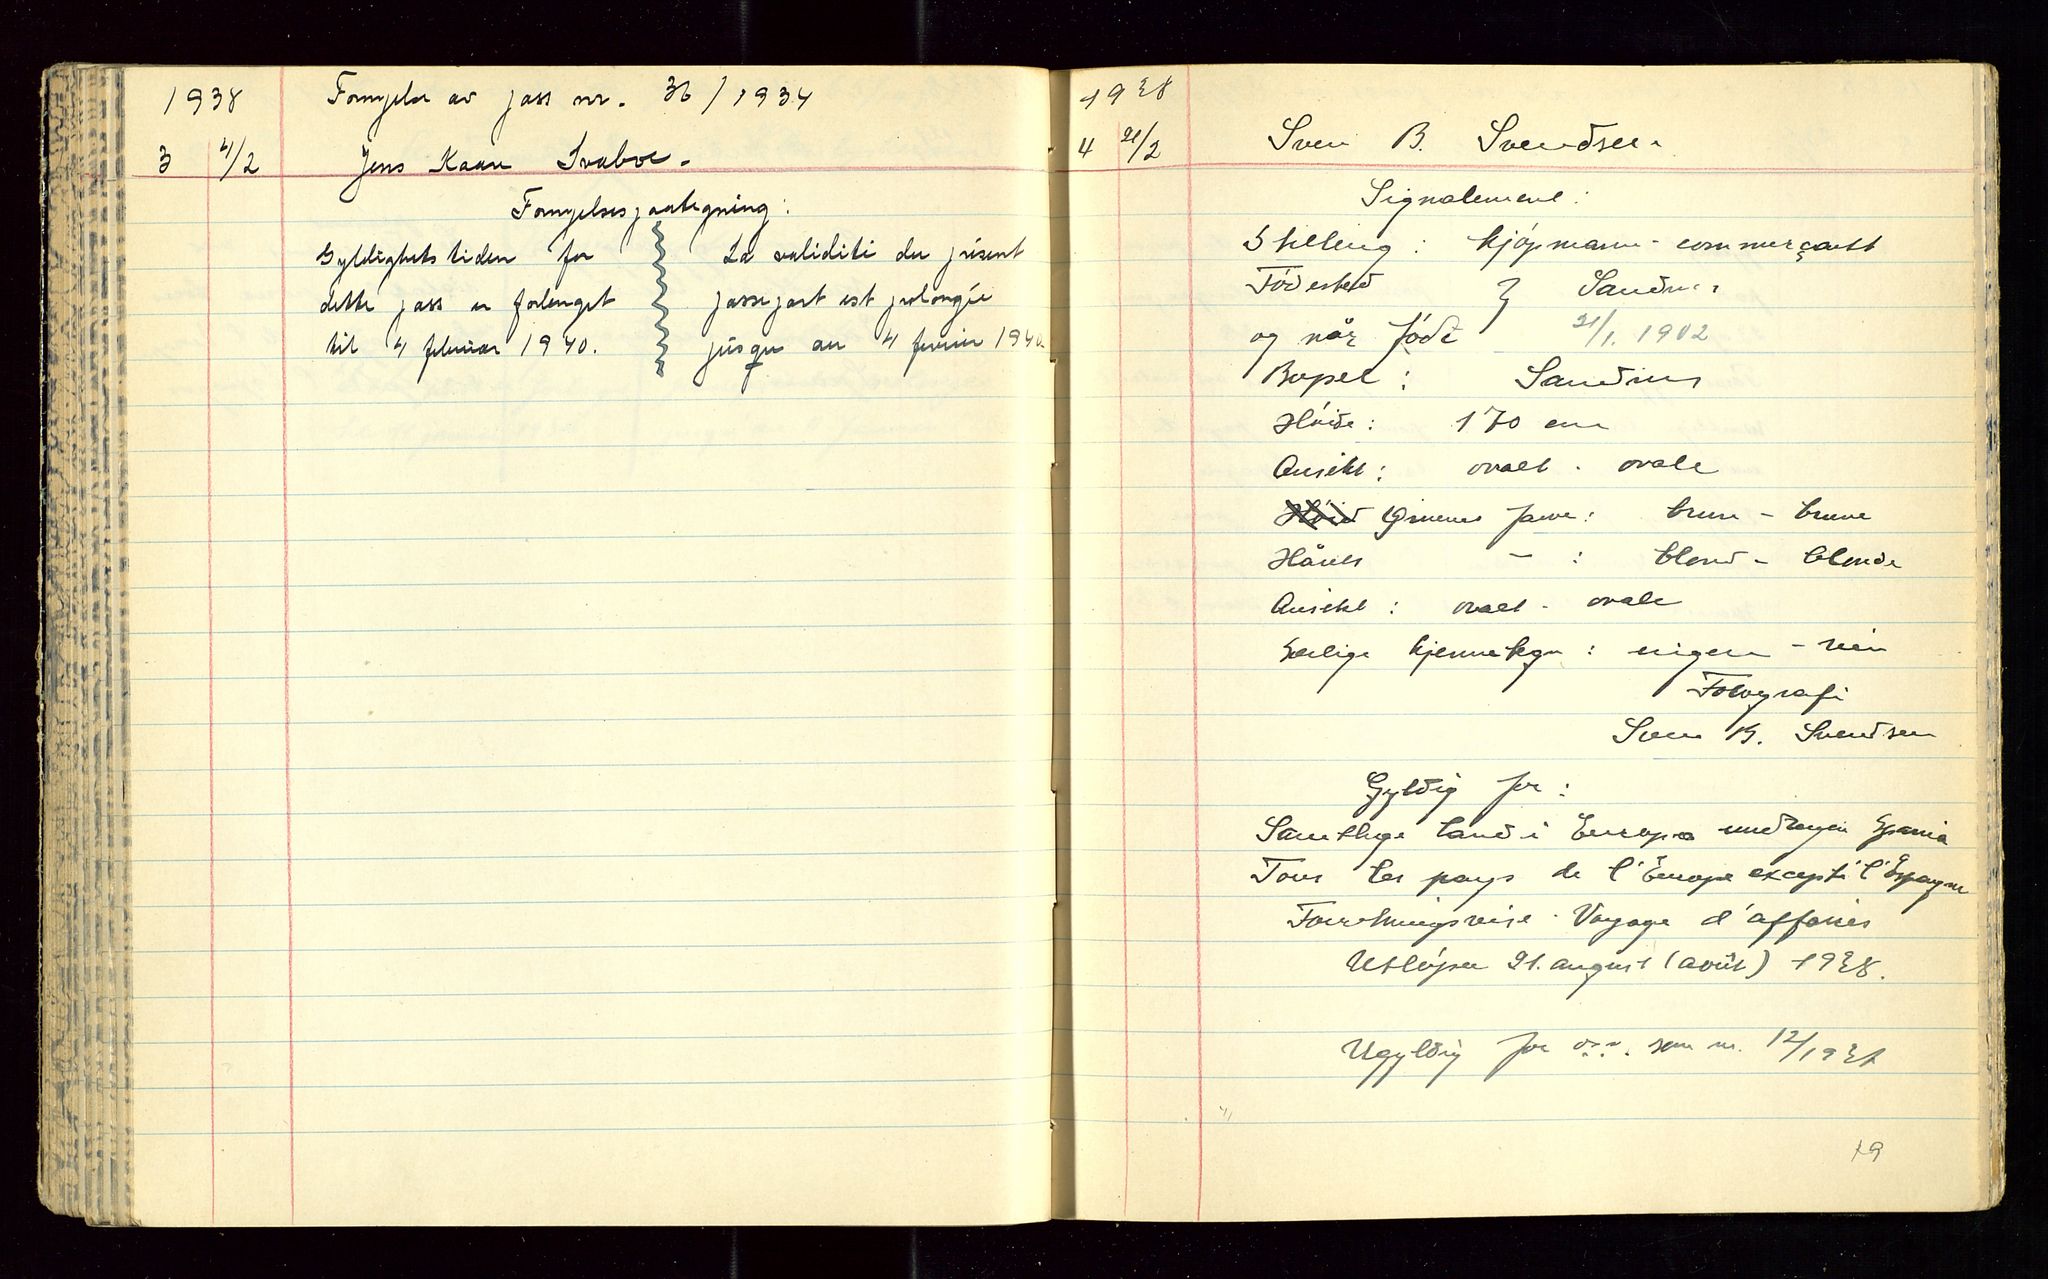 1938 Fornyelse av pass nr. 36/1934
3 4/2 Jens Kaare Svaboe.
Fornyelsespaategning:
Gyldighetstiden for
dette pass er forlenget
til 4 februar 1940.
La validité du présent
passeport est prolongée
jusque au 4 fevrier 1940.
1938
4 21/2 Sven B. Svendsen
Signalement:
Stilling: kjøpmann - commerçantt
Fødested } Sandnes
og når født 21/1. 1902
Bopel: Sandnes
Høide: 170 cm
Ansikt: ovalt - ovale
Høid Øinenes farve: brun - brune
Hårets — : blond - blonde
Ansikt: ovalt - ovale
Særlige kjennetegn: ingen - rien
Fotografi
Sven B. Svendsen
Gyldig for:
Samtlige land i Europa undtagen Spania
Tous les pays de l'Europe excepté l'Espagne
Forretningsreise - Voyage d'affaires
Utløper 21. august (août) 1938.
Ugyldig for o.s.v. som nr. 12/1937
19